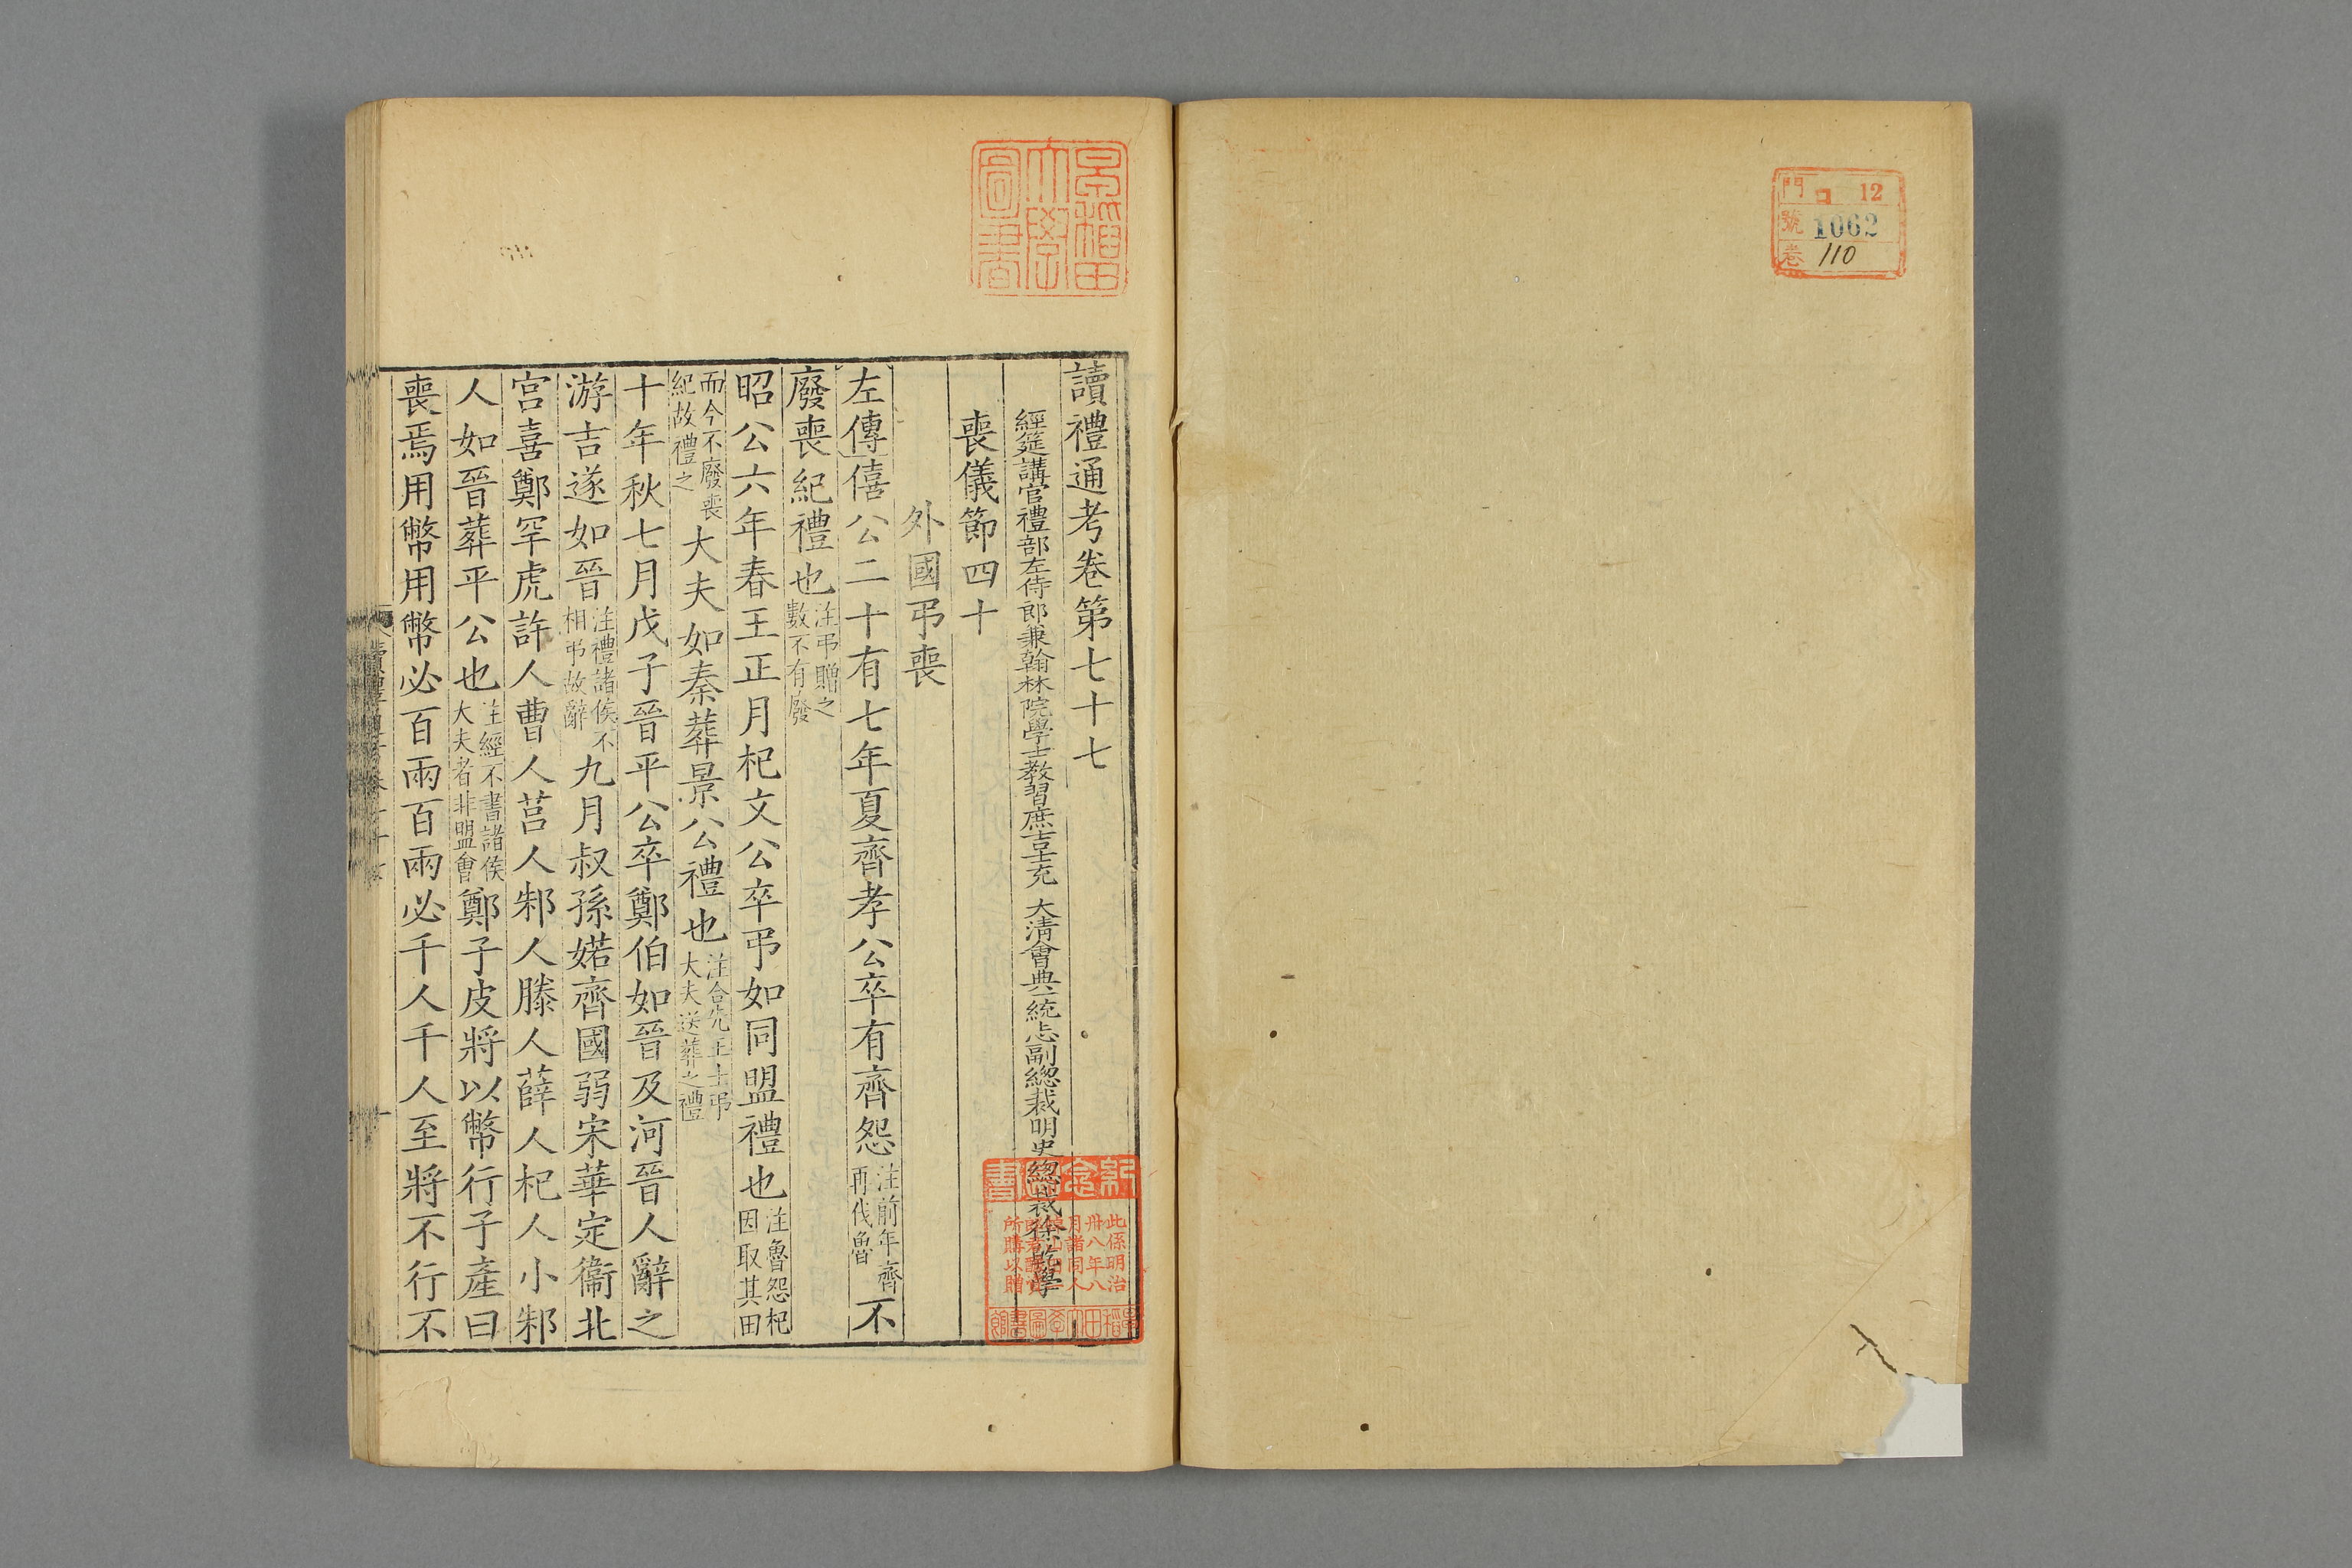 門 口 12
號 1062
卷 110
早稻田
大學
圖書
讀禮通考卷第七十七
經筵講官禮部左侍郎兼翰林院學士教習庶吉士充 大清會典一統志副總裁明史總裁徐乾學
喪儀節四十
外國弔喪
左傳僖公二十有七年夏齊孝公卒有齊怨注前年齊再伐魯不
廢喪紀禮也注弔贈之數不有廢
昭公六年春王正月杞文公卒弔如同盟禮也注魯怨杞因取其田
而今不廢喪紀故禮之大夫如秦葬景公禮也注合先王士弔大夫送葬之禮
十年秋七月戊子晉平公卒鄭伯如晉及河晉人辭之
游吉遂如晉注禮諸侯不相弔故辭九月叔孫婼齊國弱宋華定衞北
宮喜鄭罕虎許人曹人莒人邾人滕人薛人杞人小邾
人如晉葬平公也注經不書諸侯大夫者非盟會鄭子皮將以幣行子產曰
喪焉用幣用幣必百兩百兩必千人千人至將不行不
紀念圖書
此係明治
卅八年八
月諸同人
所購以贈
早稻田大學圖書館